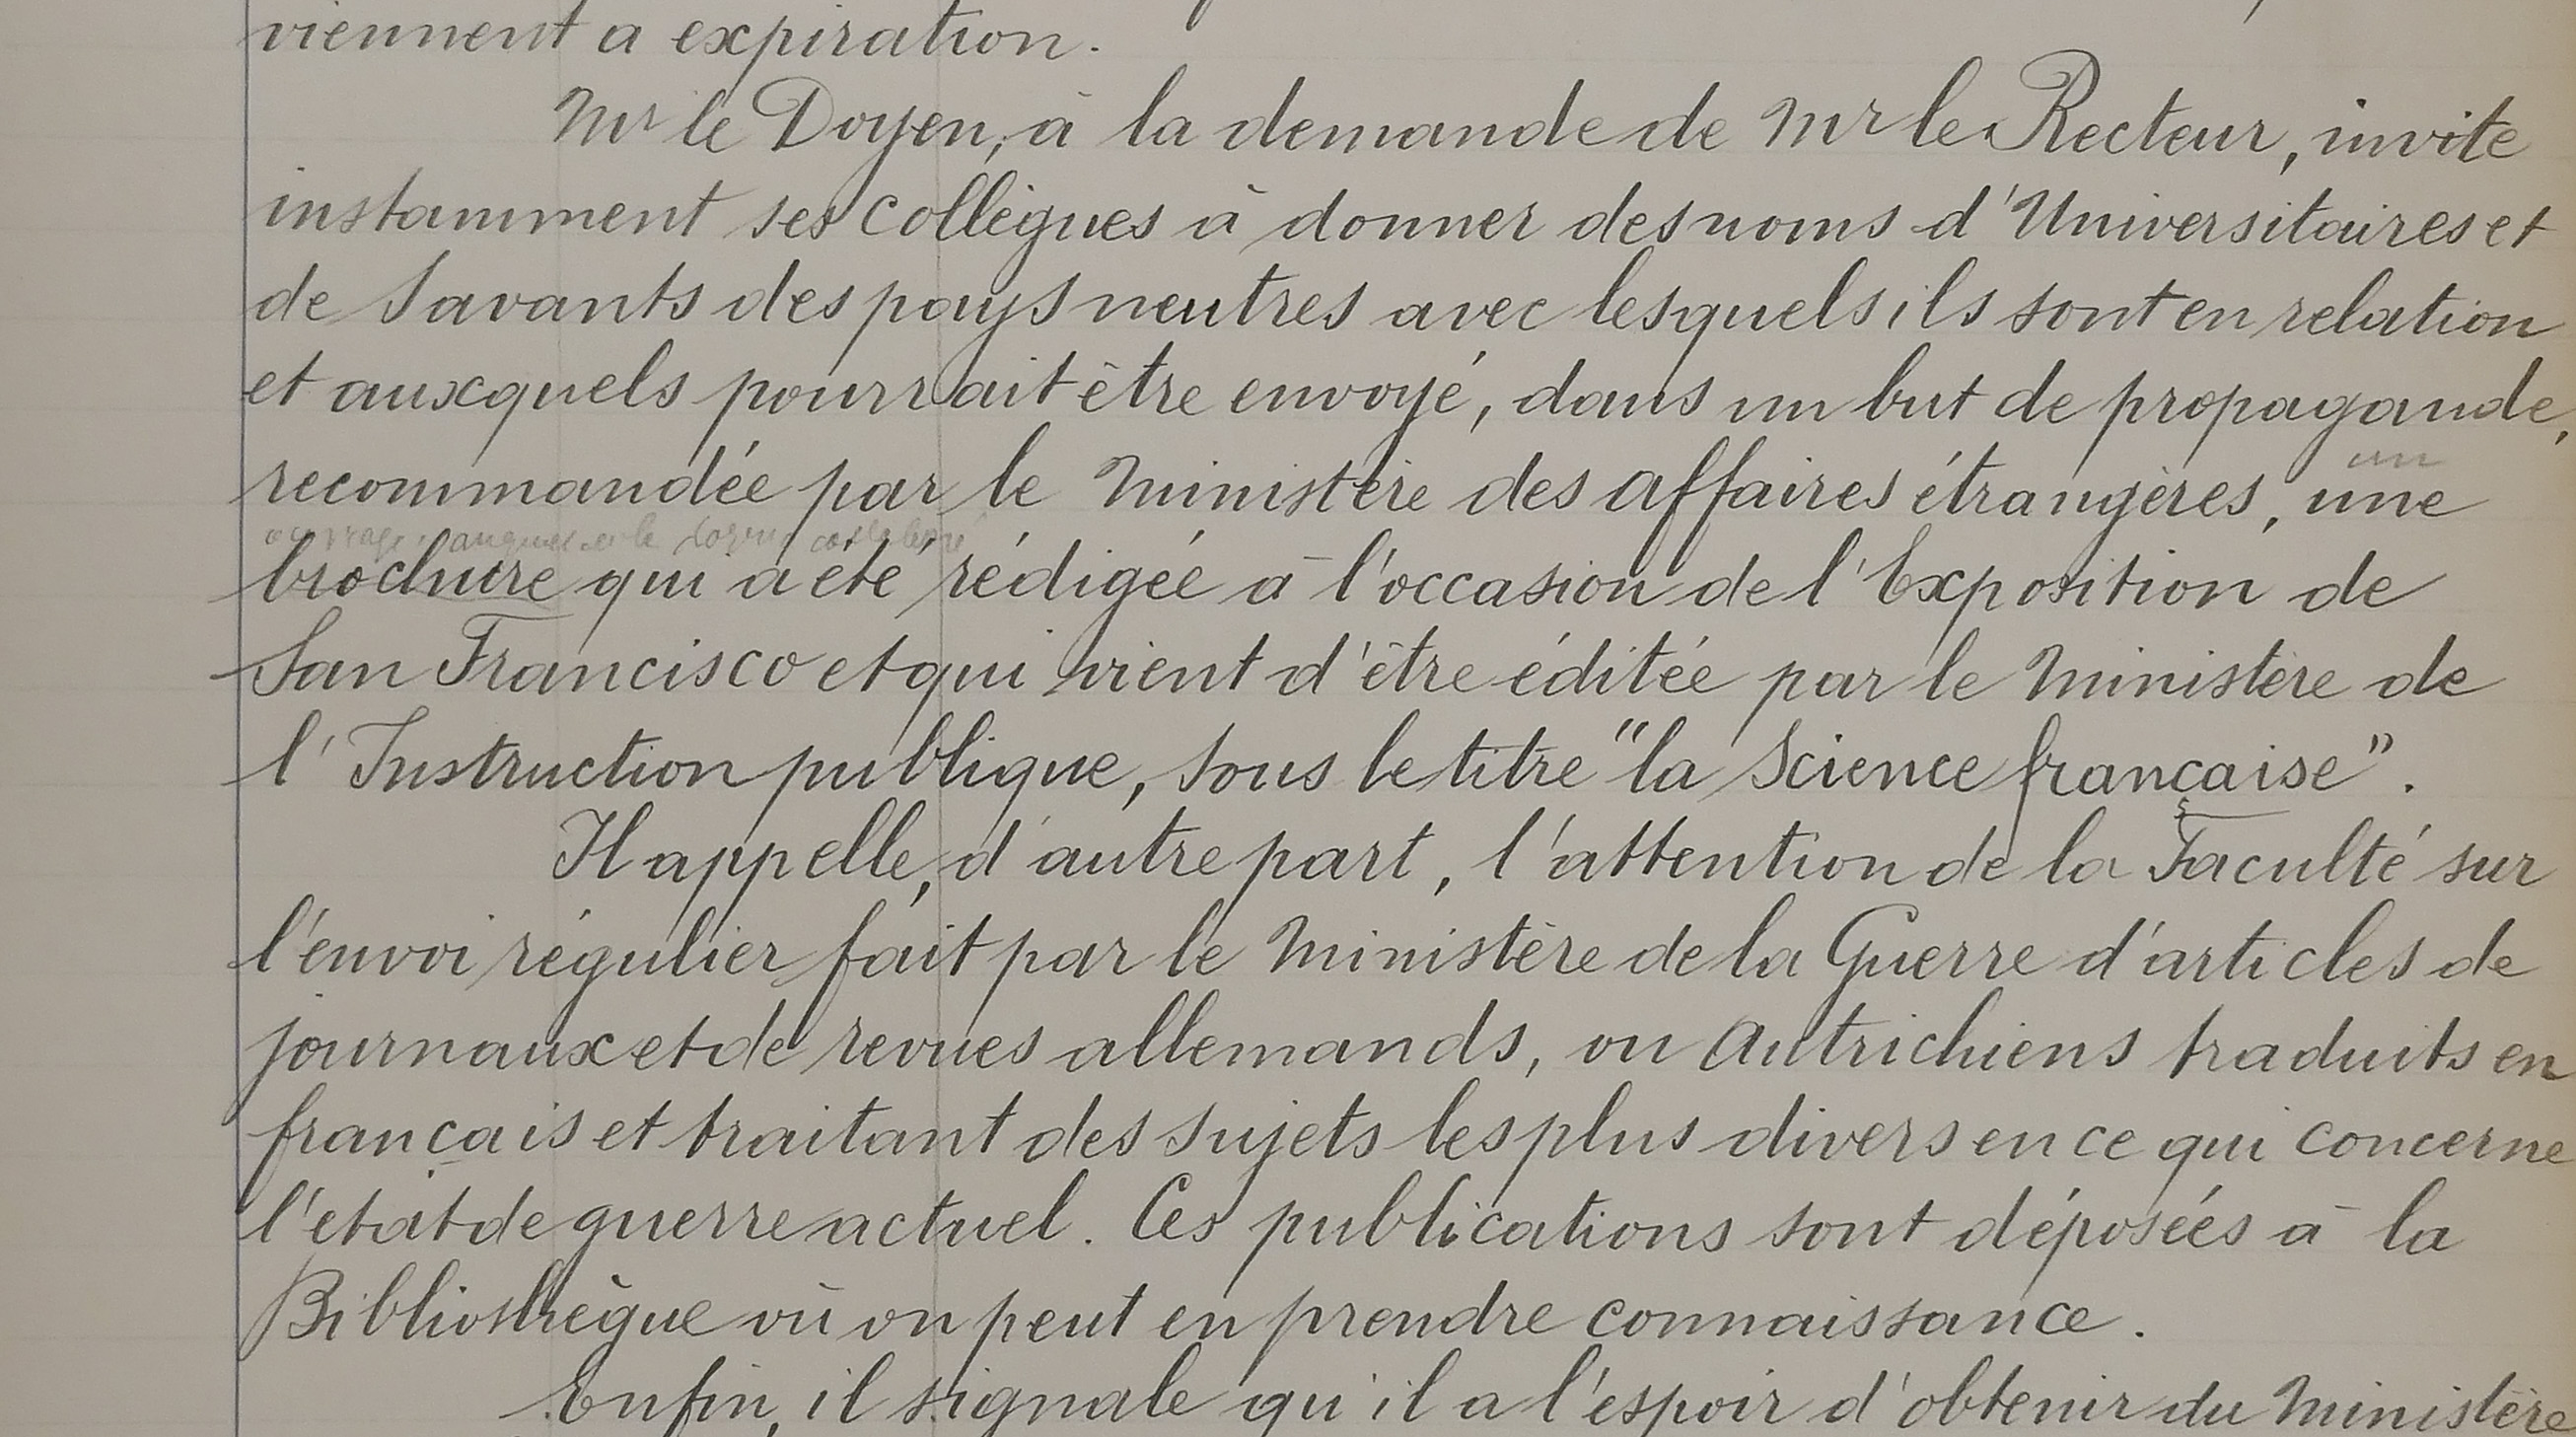 viennent a expiration.
Mr le Doyen, à la demande de Mr le Recteur, invite
instamment ses collègues à donner des noms d'Universitaires et
de Savants des pays neutres avec lesquels ils sont en relation
et auxquels pourrait être envoyé, dans un but de propagande,
un
recommandée par le Ministère des Affaires étrangères, une
ouvrage
brochure qui a été rédigée à l'occasion de l'Exposition de
San Francisco et qui vient d'être éditée par le Ministère de
l'Instruction publique, sous le titre "la Science française".
Il appelle, d'autre part, l'attention de la Faculté sur
l'envoi régulier fait par le Ministère de la Guerre d'articles de
journaux et de revues allemands, ou Autrichiens traduits en
français et traitant des sujets les plus divers en ce qui concerne
l'etat de guerre actuel. Ces publications sont déposées à la
Bibliothèque où on peut en prendre connaissance.
Enfin, il signale qu'il a l'espoir d'obtenir du Ministère